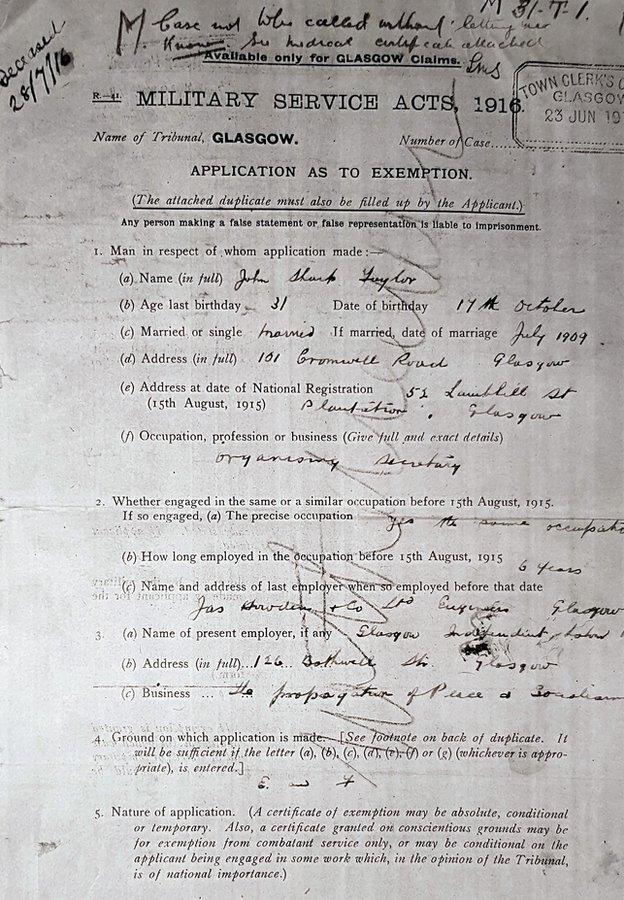 M 31-T-1.
M. Case not to be called without letting me
Know See medical certificate attached
deceased
28/7/16
Available only for GLASGOW Claims.
R.—41. MILITARY SERVICE ACTS, 1916.
TOWN CLERK'S
GLASGOW
23 JUN 19
Name of Tribunal, GLASGOW. Number of Case
APPLICATION AS TO EXEMPTION.
(The attached duplicate must also be filled up by the Applicant.)
Any person making a false statement or false representation is liable to imprisonment.
1. Man in respect of whom application made :—
(a) Name (in full) John Sharp Taylor
(b) Age last birthday 31 Date of birthday 17th October
(c) Married or single married If married, date of marriage July 1909
(d) Address (in full) 101 Cromwell Road Glasgow
(e) Address at date of National Registration 52 Lambhill St
(15th August, 1915) Plantation, Glasgow
(f) Occupation, profession or business (Give full and exact details)
Organising Secretary
2. Whether engaged in the same or a similar occupation before 15th August, 1915.
If so engaged, (a) The precise occupation yes the same occupatio
(b) How long employed in the occupation before 15th August, 1915 6 years
(c) Name and address of last employer when so employed before that date
Jas Howden & Co Ltd Engineers Glasgow
3. (a) Name of present employer, if any Glasgow Independent Labor
(b) Address (in full)...126 Bothwell St. Glasgow
(c) Business ... The propagation of Peace & Socialism
4. Ground on which application is made. [See footnote on back of duplicate. It
will be sufficient if the letter (a), (b), (c), (d), (e), (f) or (g) (whichever is appro-
priate), is entered.]
E. and F
5. Nature of application. (A certificate of exemption may be absolute, conditional
or temporary. Also, a certificate granted on conscientious grounds may be
for exemption from combatant service only, or may be conditional on the
applicant being engaged in some work which, in the opinion of the Tribunal,
is of national importance.)